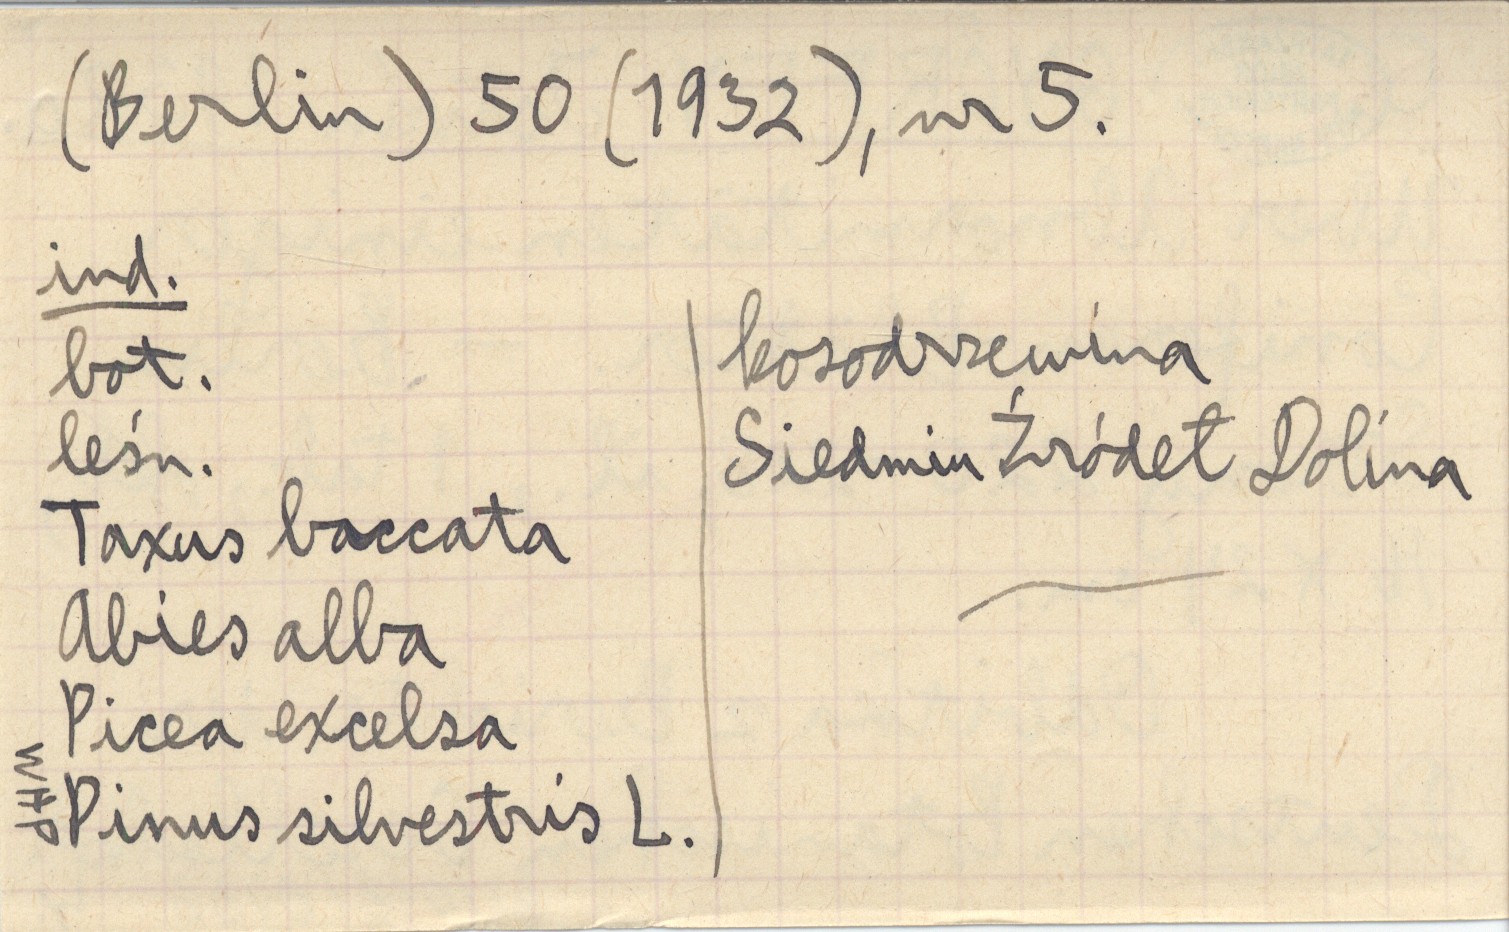 (Berlin) 50 (1932), nr 5.
ind.
bot.
leśn.
Taxus baccata
Abies alba
Picea excelsa
Pinus silvestris L.
WHP
kosodrzewina
Siedmiu Źródeł Dolina